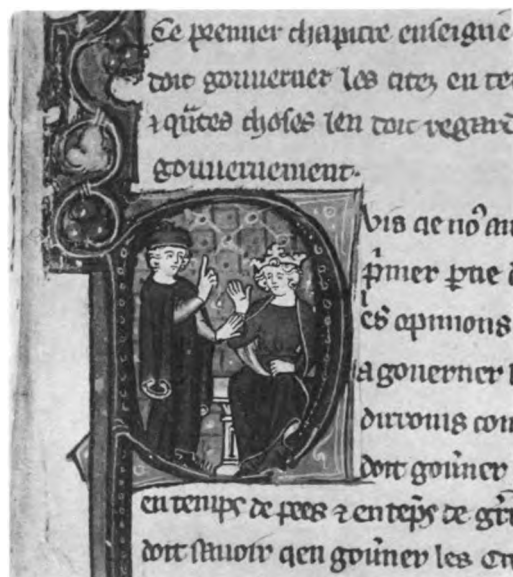 Ce premier chapitre enseigne
doit gouverner les citez en te
⁊ qu̅tes choses len doit regard
gouuernement.
Puis qe noꝰ au
p̅mier ptie d
les opinions
a gouerner l
dirrouns com
doit gou̅ner
en temps de pees ⁊ en te̅ps de g̅r
doit sauoir qen gou̅ner les Cit